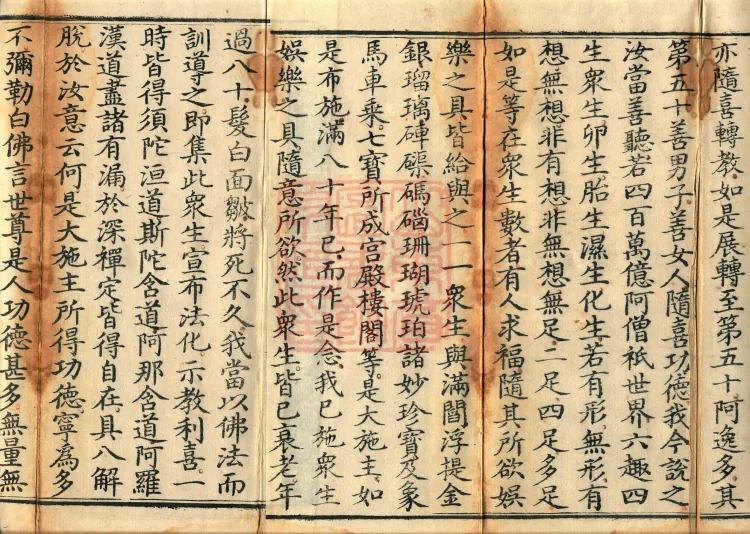 亦隨喜轉教。如是展轉至第五十。阿逸多。其
第五十善男子善女人隨喜功德。我今說之。
汝當善聽。若四百萬億阿僧祇世界六趣四
生衆生。卵生胎生濕生化生。若有形無形。有
想無想。非有想非無想。無足二足四足多足。
如是等在衆生數者。有人求福。隨其所欲娛
樂之具。皆給與之。一一衆生。與滿閻浮提金
銀瑠璃硨磲碼碯珊瑚琥珀諸妙珍寶。及象
馬車乘。七寶所成宮殿樓閣等。是大施主。如
是布施。滿八十年已。而作是念。我已施衆生
娛樂之具。隨意所欲。然此衆生。皆已衰老。年
過八十。髮白面皺。將死不久。我當以佛法而
訓導之。即集此衆生。宣布法化。示教利喜。一
時皆得須陀洹道。斯陀含道。阿那含道。阿羅
漢道。盡諸有漏。於深禪定。皆得自在。具八解
脫。於汝意云何。是大施主所得功德寧為多
不。彌勒白佛言。世尊。是人功德甚多。無量無